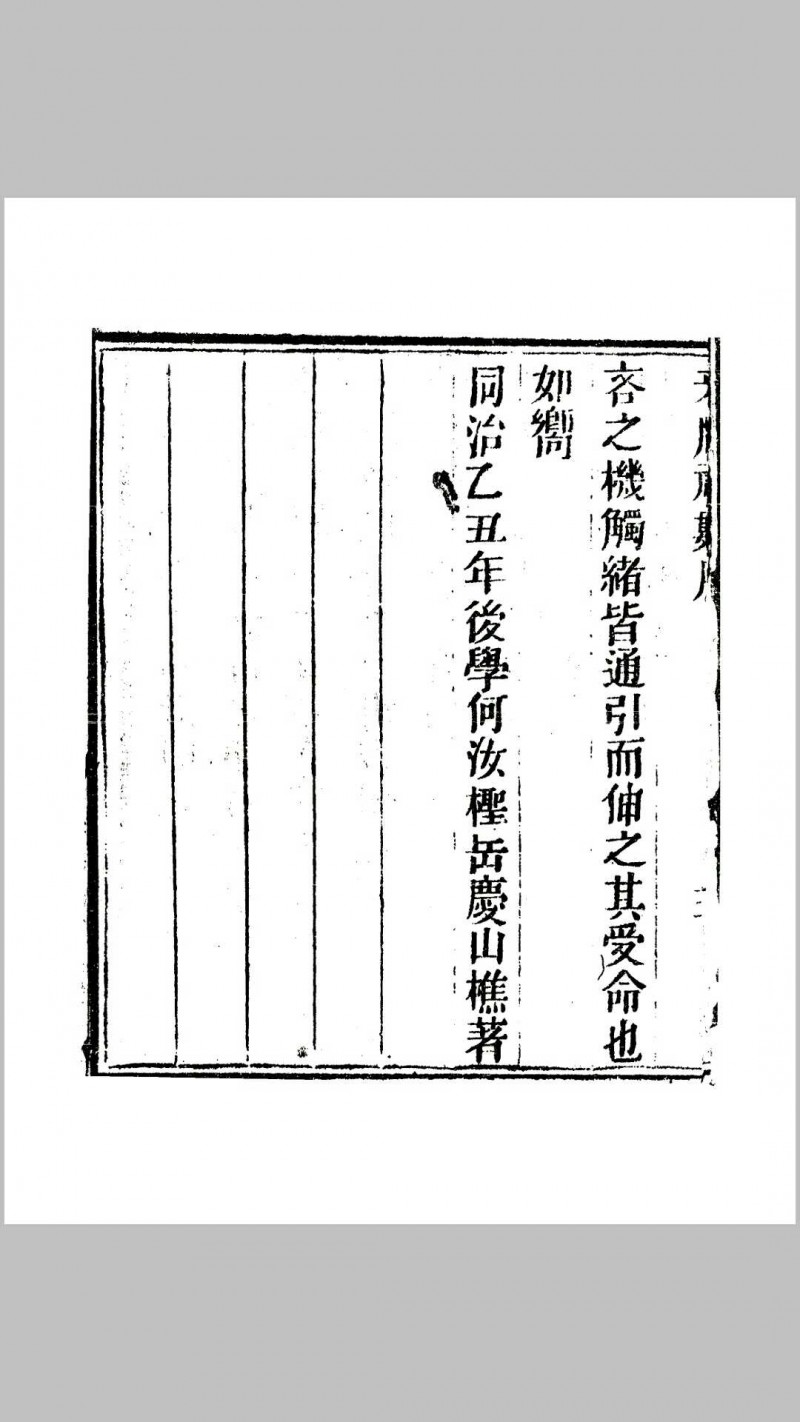 牙牌神數序
吝之機觸緒皆通引而伸之其受命也
如嚮
同治乙丑年後學何汝檉岳慶山樵著